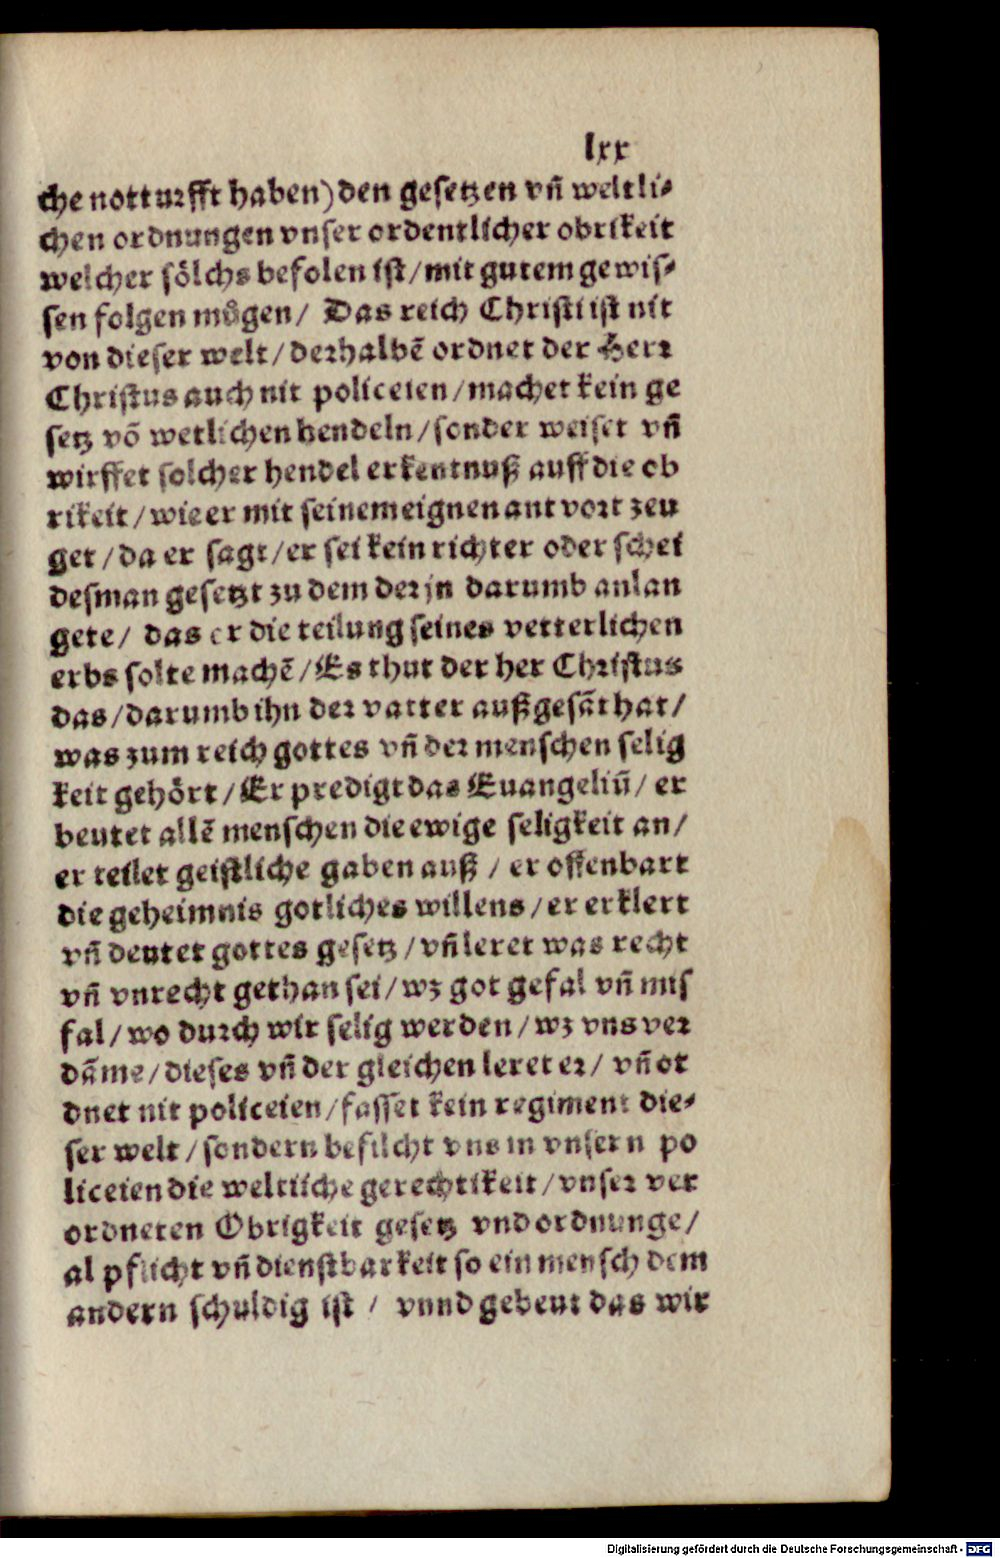 lxx
che notturfft haben) den gesetzen vñ weltli-
chen ordnungen vnser ordentlicher obrikeit
welcher sölchs befolen ist/mit gutem gewis-
sen folgen můgen/ Das reich Christi ist nit
von dieser welt/derhalbẽ ordnet der Herr
Christus auch nit policeien/machet kein ge
setz võ wetlichen hendeln/sonder weiset vñ
wirffet solcher hendel erkentnuß auff die ob
rikeit/wie er mit seinem eignen antvort zeu
get/da er sagt/er sei kein richter oder schei
desman gesetzt zu dem der jn darumb anlan
gete/ das er die teilung seines vetterlichen
erbs solte machẽ/Es thut der her Christus
das/darumb ihn der vatter außgesãt hat/
was zum reich gottes vñ der menschen selig
keit gehört/Er predigt das Euangeliũ/ er
beutet allẽ menschen die ewige seligkeit an/
er teilet geistliche gaben auß / er offenbart
die geheimnis gotliches willens/er erklert
vñ deutet gottes gesetz/vñ leret was recht
vñ vnrecht gethan sei/wz got gefal vñ mis
fal/wo durch wir selig werden/wz vns ver
dãme/dieses vñ der gleichen leret er/ vñ or
dnet nit policeien/fasset kein regiment die-
ser welt/sondern befilcht vns in vnsern po
liceien die weltliche gerechtikeit/vnser ver
ordneten Obrigkeit gesetz vnd ordnunge/
al pflicht vñ dienstbarkeit so ein mensch dem
andern schuldig ist / vnnd gebeut das wir
Digitalisierung gefördert durch die Deutsche Forschungsgemeinschaft - DFG